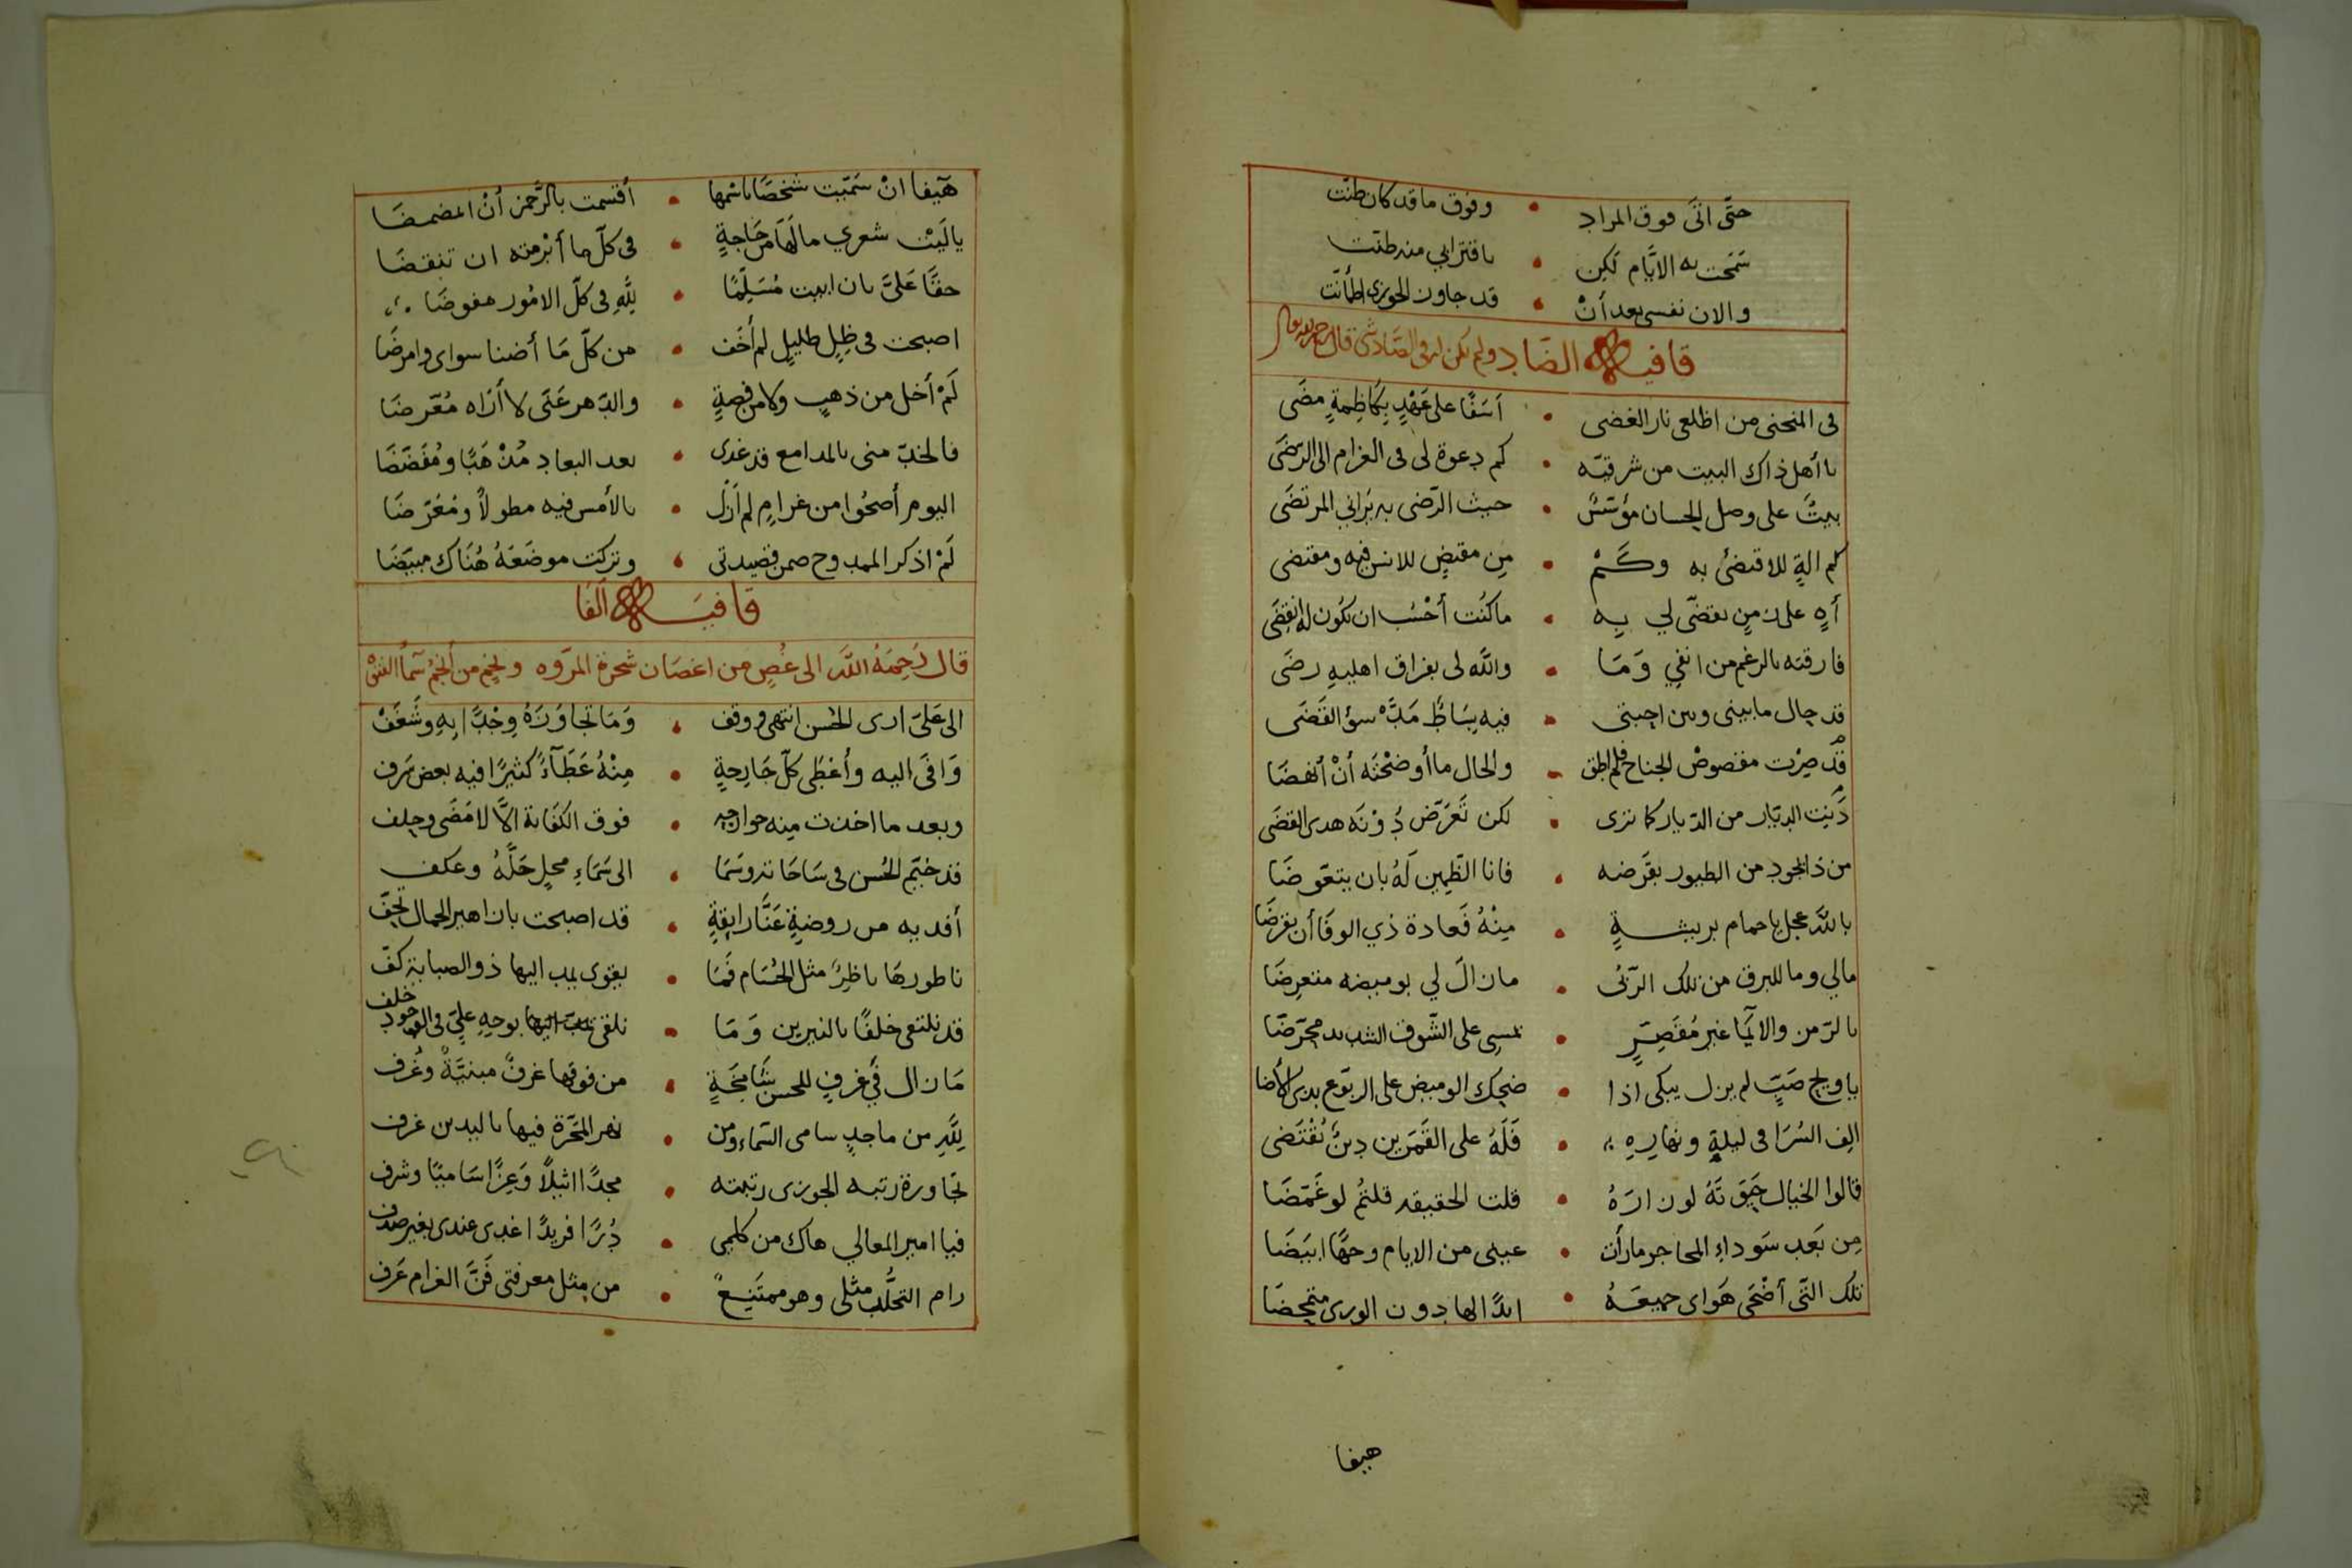 حتّى اتى فوق المراد • وفوق ما قد كان ظنّت
سَمَحت به الايّام لكن • باقترابي منه ظنّت
والان نفسي بعد أنْ • قد جاوز الجوزى اطمأنّت
قافيه الضاد ولم يكن له فى الصّاد شى قال
فى المنحنى من اظلعى نار الغضى • اَسَفًا على عَهْدٍ بِكاظِمةٍ مضَى
يا أهل ذاك البيت من شرقيّه • كم دعوة لى فى الغرام الى الرّضَى
بيتٌ على وصل الحسان مؤسّسٌ • حيث الرّضى به يَرَاني المرتضَى
كم الةٍ للاقتضى به وكَمْ • مِن مقتضٍ للانس فيه ومقتضى
أهٍ على زمنٍ تقضّى لي بِه • ما كُنت أحْسب ان يكون له انقضَى
فارقته بالرغم من انفي وَمَا • واللّه لى بفراق اهليهِ رضَى
قد حال ما بينى وبين احبتى • فيه بِسَاطٌ مَدَّهُ سؤ القَضَى
قد صِرْت مقصوصْ الجناح فلم اطق • والحال ما أوضحْتَه أنْ أنهضَا
دَنِيَت الديَار من الدّيار كما ترى • لكن تَعَرّض دُوْنَه هدى القضَى
من ذا يجود من الطيور بقَرَضه • فانا الظّمِين لَهُ بان يتعّوضَا
باللَّه عجل يا حمام بريشةٍ • مِنْهُ فَعادة ذي الوفَا أن يقرضَا
مالي وما للبرق من تلك الرّبُى • ما زالَ لي بوميضه متعرِضَا
بالرّمز والايَما غير مُقَصِّرٍ • يمسِى على الشّوق الشديد محرّضَا
يا ويح صَبٍّ لم يزل يبكى اذا • ضحِك الوميض على الربوع بذى الأضا
الِف السُرَا فى ليلهِ ونهارهِ • فَلَهُ على القَمَرين دينٌ يُقْتَضى
قالوا الخيال حَقيقَةُ لو زارَهُ • قلت الحقيقه قلتمُ لو غَمَضَا
مِن بَعد سَوداءِ المحاجر ما رأت • عينى من الايام وجهًا ابيَضَا
تلك التّى أضْحَى هَواى جميعَهُ • ابدًا لها دون الورى متمحضَا
هيفا
هَيفا انْ سَمّيت شخصًا باسْمها • أقسمت بالرَّحمن أنْ
يا لَيتْ شعري ما لَهَا من حَاجةٍ • فى كلّ ما أبْرمته ان تنقضَا
حقًّا عَلىَّ بان ابيت مُسَلِّمًا • لِلَّهِ فى كلّ الامُور مفوضَا
اصبحت فى ظِلٍ ظليلٍ لم أخَف • من كلّ مَا أضنا سواى وامرضَا
لَمْ أخل من ذهبٍ ولا من فضةٍ • والدّهر عَنى لا أرَاه مُعّرضَا
فالخدّ منى بالمدامع قد غدى • بعد البعاد مُذْهَبًا ومُفَضَضَا
اليوم أضحُوا من غرامٍ لم أزل • بالأمس فيه مطولاً ومُعَرّضَا
لَمْ اذكر الممدوح ضمن قصيدتى • وتركت موضَعَهُ هُنَاك مبيّضَا
قافيَه الفَا
قال رَحِمَهُ اللَّه الى غُصِنٍ من اغصَان شجرة المرّوه ونجمٍ من أنجُم سَماءُ
الى عَلىَ ارى الحُسن انتهى ووقف • وَمَا تجَاوَزَهُ وِجْدًا بِهِ وشَغَفْ
وَافَى اليه وأعْطَى كلّ جَارِحةٍ • مِنْهُ عَطَآءً كثيرًا فيه بعض سَرف
وبعد ما اخذت مِنه جوارحه • فوق الكفاية الاَّ لا مَضَى وحلف
قد خيّم الحُسن فى سَاحَاته وسَمَا • الى سَمَاءِ محلٍ حَلَّهُ وعكف
أفديه من روضةٍ غَنَّا رايقةٍ • قد اصبحت بازاهير الجمال تُحَفّ
ناطورهَا ناظِرٌ مثل الحُسَام فَمَا • يقوى يمد اليها ذو الصبابة كفّ
قد نلتقى خلفًا بالنيرين وَمَا • نلقى بوجهِ عليٍّ فى الوجود خلف
مَا زال في غرفٍ للحسن شَامِخةٍ • من فوقها غرفٌ مبنيّةٌ وغُرف
لِلَّهِ من ماجدٍ سامى السّماء ومن • نهر المجَرّة فيها باليدين غرف
تجَاوزة رتبه الجوزى رتبته • مجدًا اثيلًا وَعِزًّا سَاميًا وشرف
فيا امير المعالي هاك من كلمي • دُرًّا فريدًا غدى عندى بغير صدف
رام التحلّى مثلى وهو ممتَنِعٌ • من مثل معرفتى فَنَّ الغرام عَرف